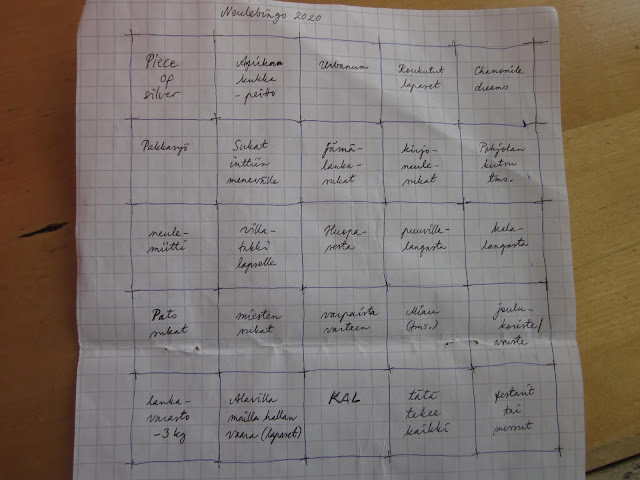 Neulebingo 2020
Piece
of
silver
Afrikan
kukka
- peitto
Urbanum
Koukutut
lapaset
Chamomile
dreams
Pakkasyö
Sukat
inttiin
menevälle
Jämä-
lanka-
sukat
kirjo-
neule-
sukat
Pohjolan
kutsu
tms.
neule-
mütti
villa-
takki
lapselle
Huopa-
sesta
puuvilla-
langasta
kala-
langasta
Pato
sukat
miesten
sukat
varpaista
varteen
Miau
(tms.)
joulu-
koriste/
asuste
lanka-
varasto
-3 kg
Alavilla
mailla hallan
vaara (lapaset)
KAL
täti
tekee
kaikki
festarit
tai
messut